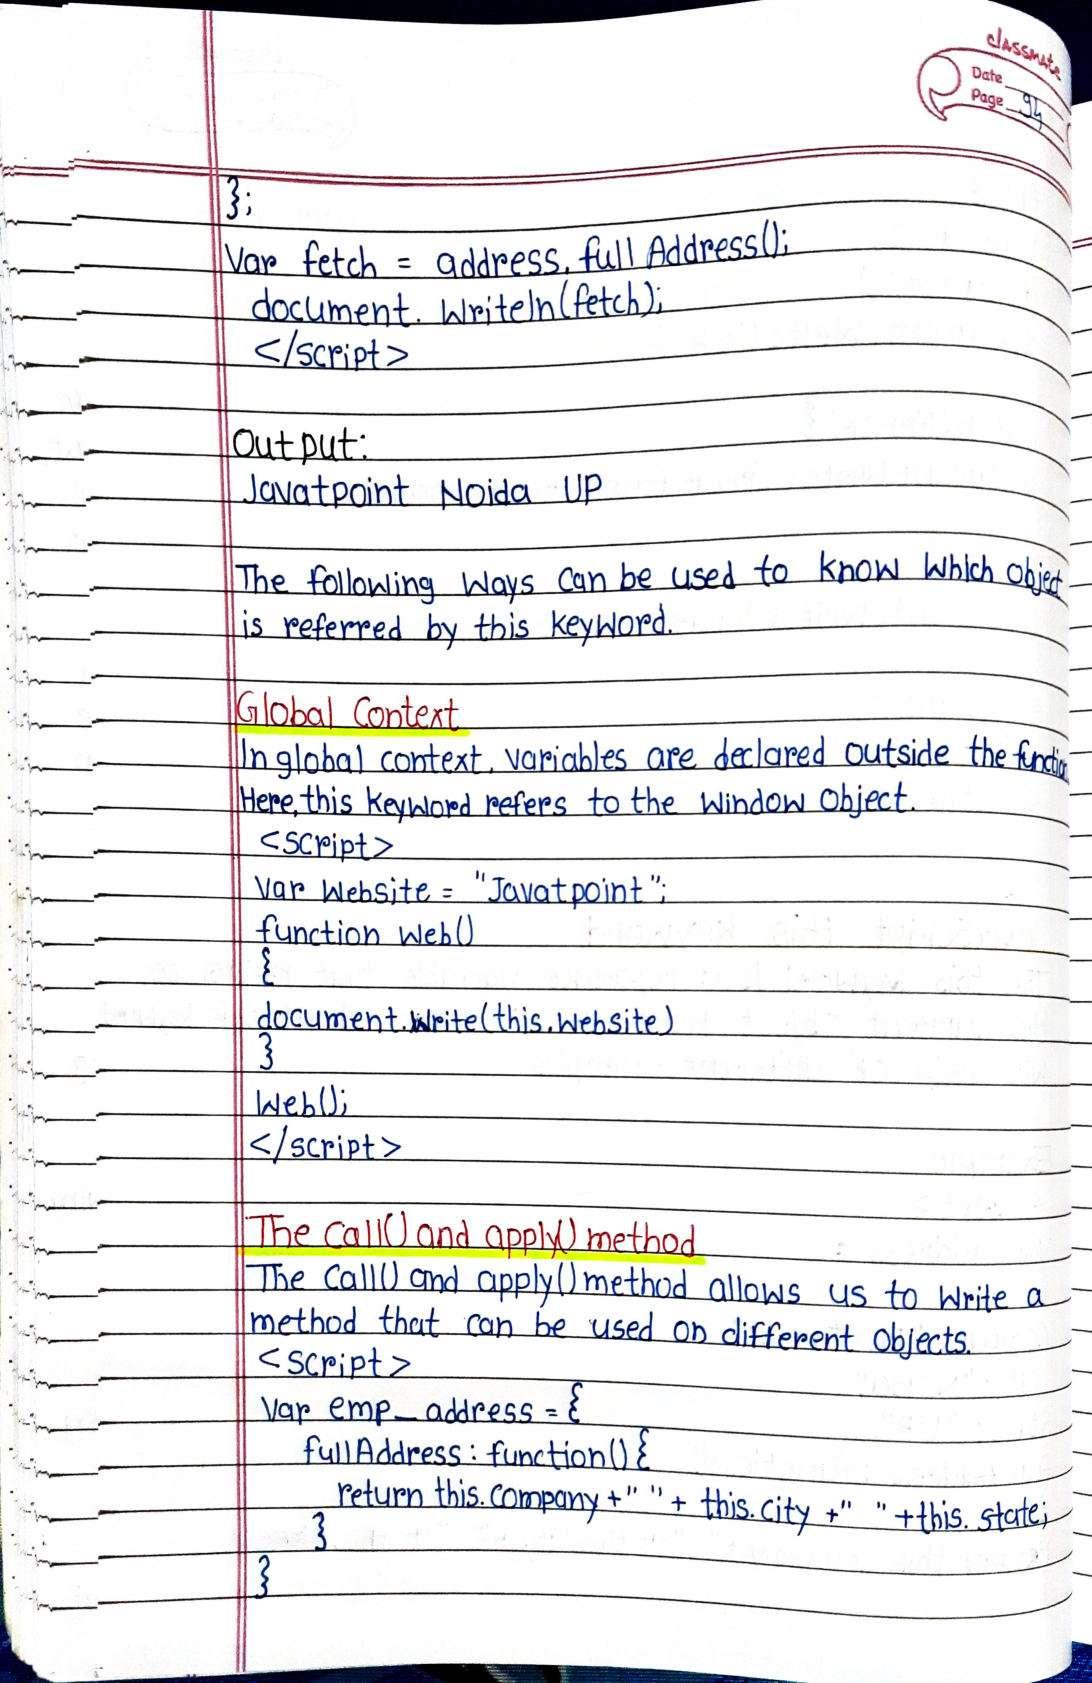 classmate
Date
Page 94
};
Var fetch = address.fullAddress();
document.writeln(fetch);
</script>
Output:
Javatpoint Noida UP
The following ways can be used to know which object
is referred by this keyword.
Global Context
In global context, variables are declared outside the function
Here, this keyword refers to the window object.
<script>
Var website = "Javatpoint";
function web()
{
document.write(this.website)
}
web();
</script>
The call() and apply() method
The call() and apply() method allows us to write a
method that can be used on different objects.
<script>
Var emp_address = {
fullAddress : function() {
return this.company +" "+ this.city +" "+this.state;
}
}